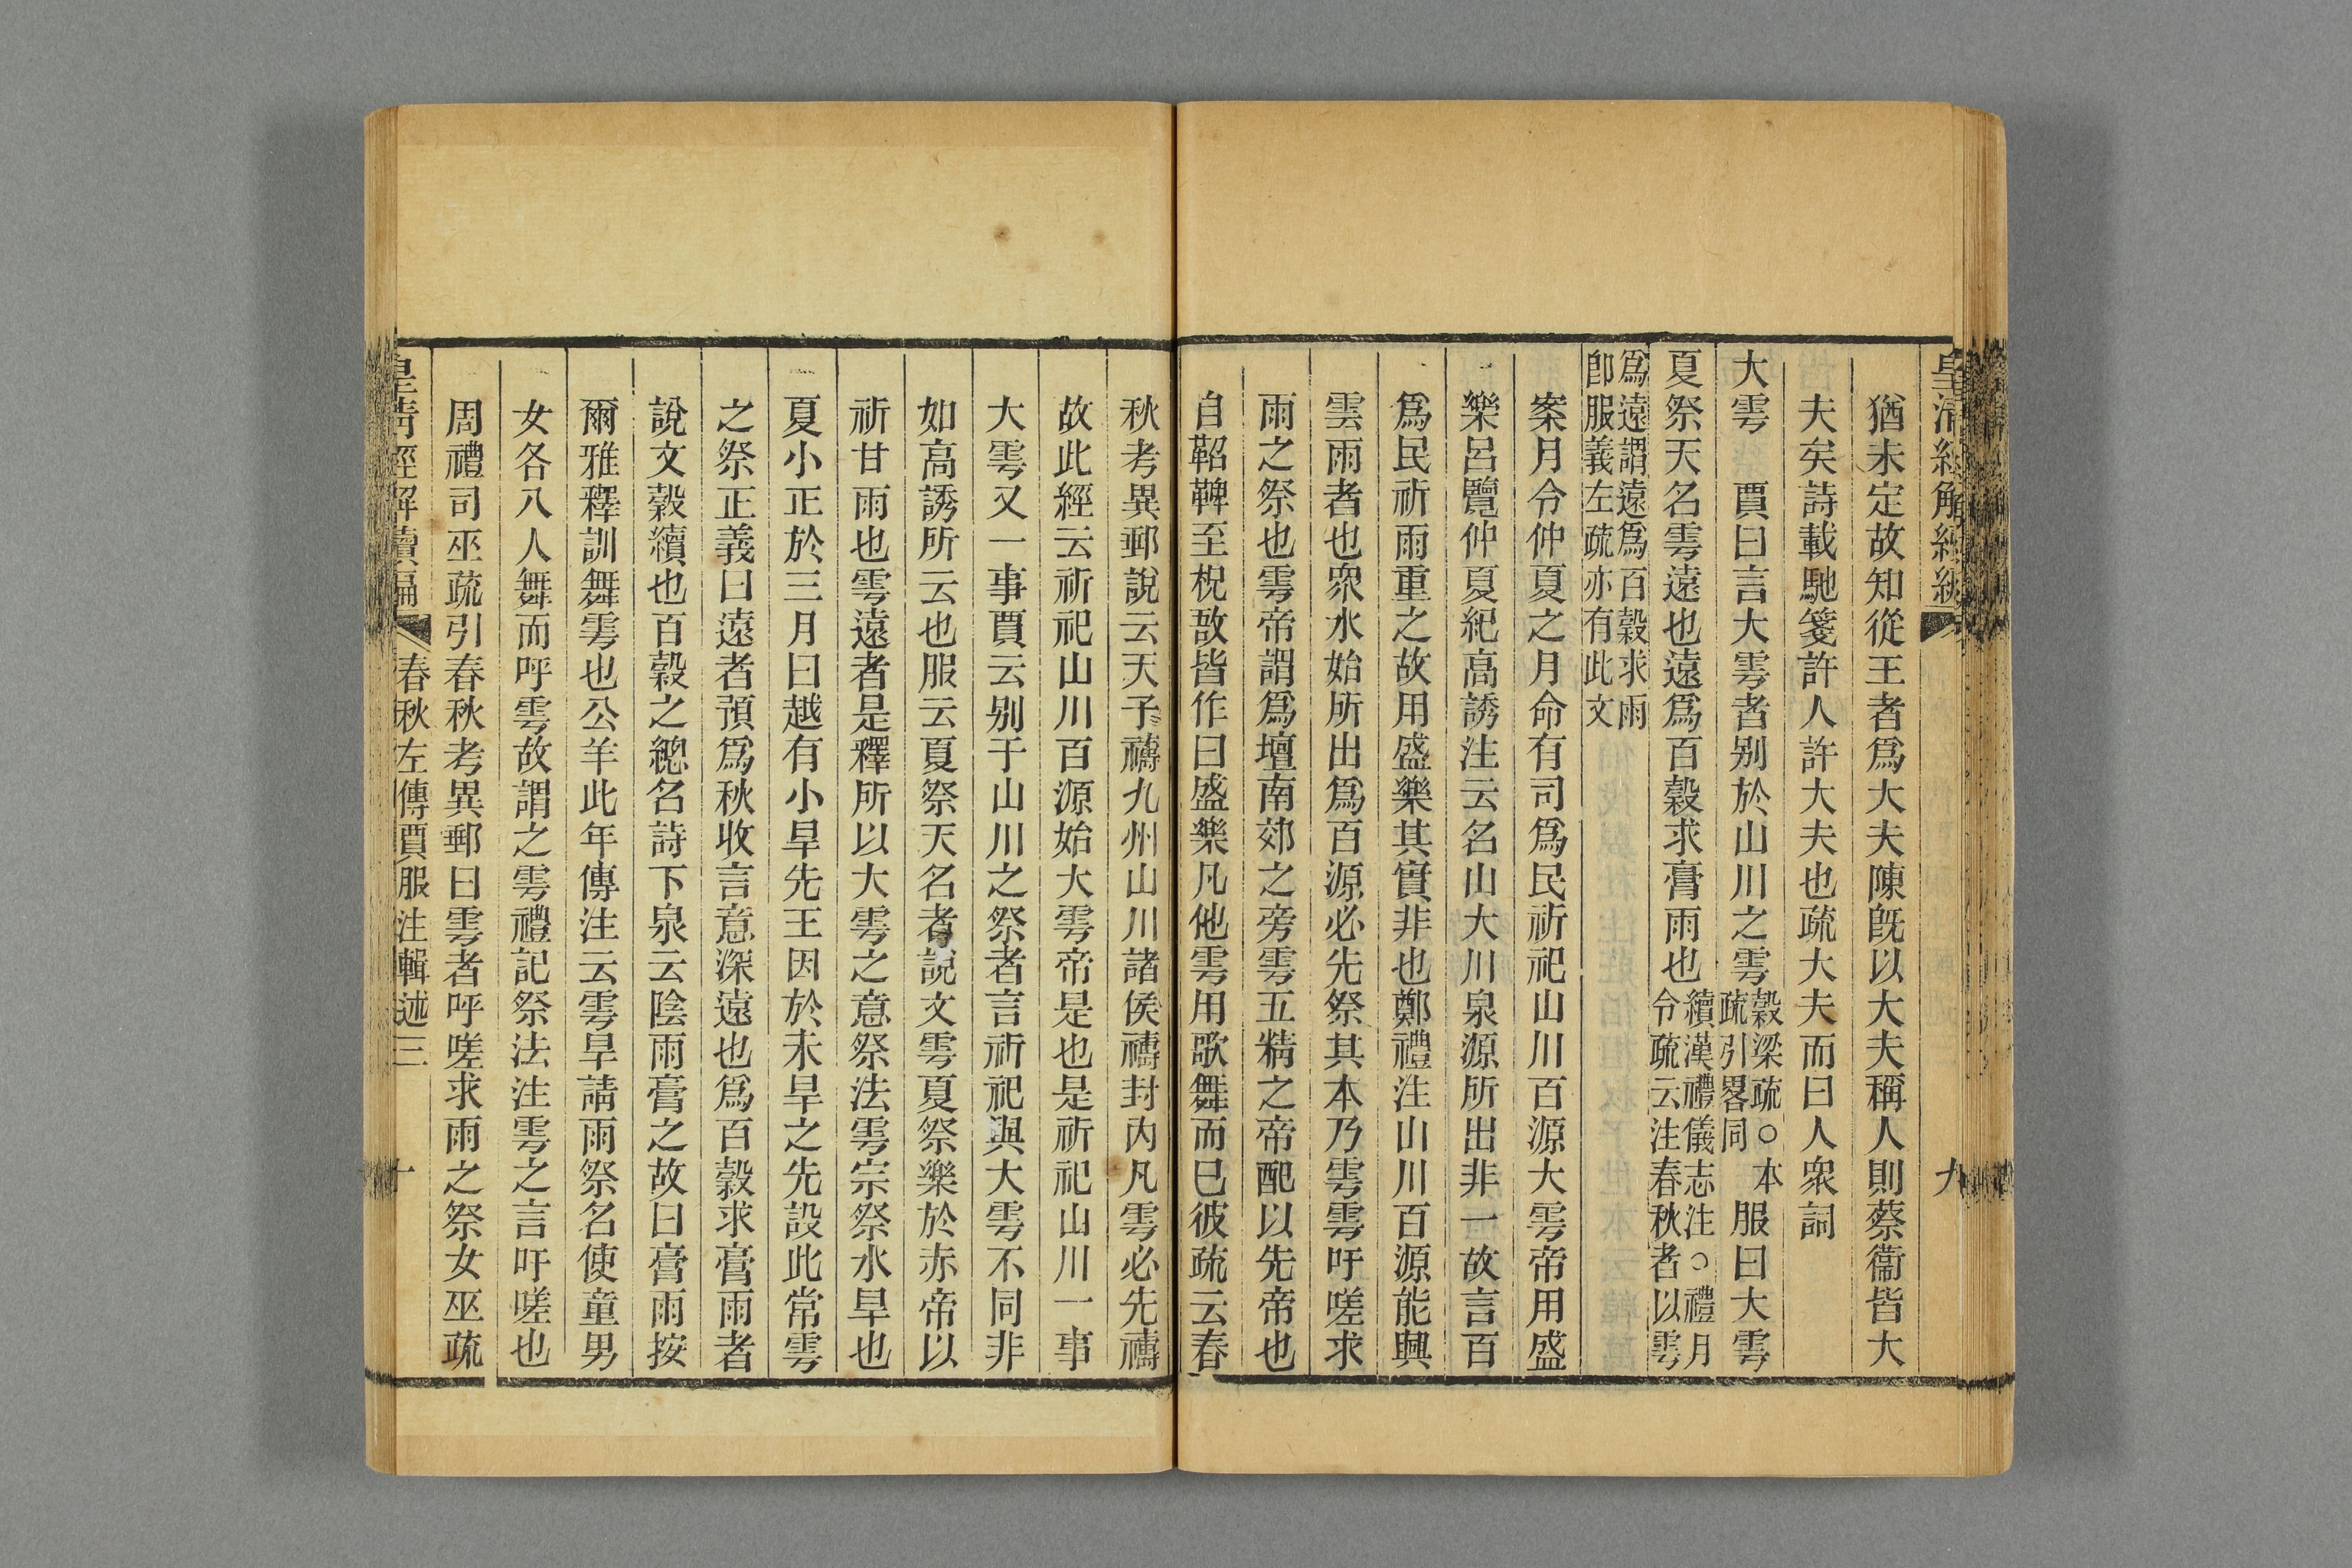 皇清經解經續 九
猶未定故知從王者爲大夫陳旣以大夫稱人則蔡衞皆大
夫矣詩載馳箋許人許大夫也疏大夫而曰人衆詞
大雩 賈曰言大雩者别於山川之雩穀梁疏○本疏引畧同 服曰大雩
夏祭天名雩遠也遠爲百穀求膏雨也續漢禮儀志注○禮月令疏云注春秋者以雩
爲遠謂遠爲百穀求雨卽服義左疏亦有此文
案月令仲夏之月命有司爲民祈祀山川百源大雩帝用盛
樂呂覽仲夏紀高誘注云名山大川泉源所出非一故言百
爲民祈雨重之故用盛樂其實非也鄭禮注山川百源能興
雲雨者也衆水始所出爲百源必先祭其本乃雩雩吁嗟求
雨之祭也雩帝謂爲壇南郊之旁雩五精之帝配以先帝也
自鞀鞞至柷敔皆作曰盛樂凡他雩用歌舞而已彼疏云春
秋考異郵說云天子禱九州山川諸侯禱封內凡雩必先禱
故此經云祈祀山川百源始大雩帝是也是祈祀山川一事
大雩又一事賈云别于山川之祭者言祈祀與大雩不同非
如高誘所云也服云夏祭天名者說文雩夏祭樂於赤帝以
祈甘雨也雩遠者是釋所以大雩之意祭法雩宗祭水旱也
夏小正於三月曰越有小旱先王因於未旱之先設此常雩
之祭正義曰遠者預爲秋收言意深遠也爲百穀求膏雨者
說文穀續也百穀之總名詩下泉云陰雨膏之故曰膏雨按
爾雅釋訓舞雩也公羊此年傳注云雩旱請雨祭名使童男
女各八人舞而呼雩故謂之雩禮記祭法注雩之言吁嗟也
周禮司巫疏引春秋考異郵曰雩者呼嗟求雨之祭女巫疏
皇清經解續編 春秋左傳賈服注輯述三 十